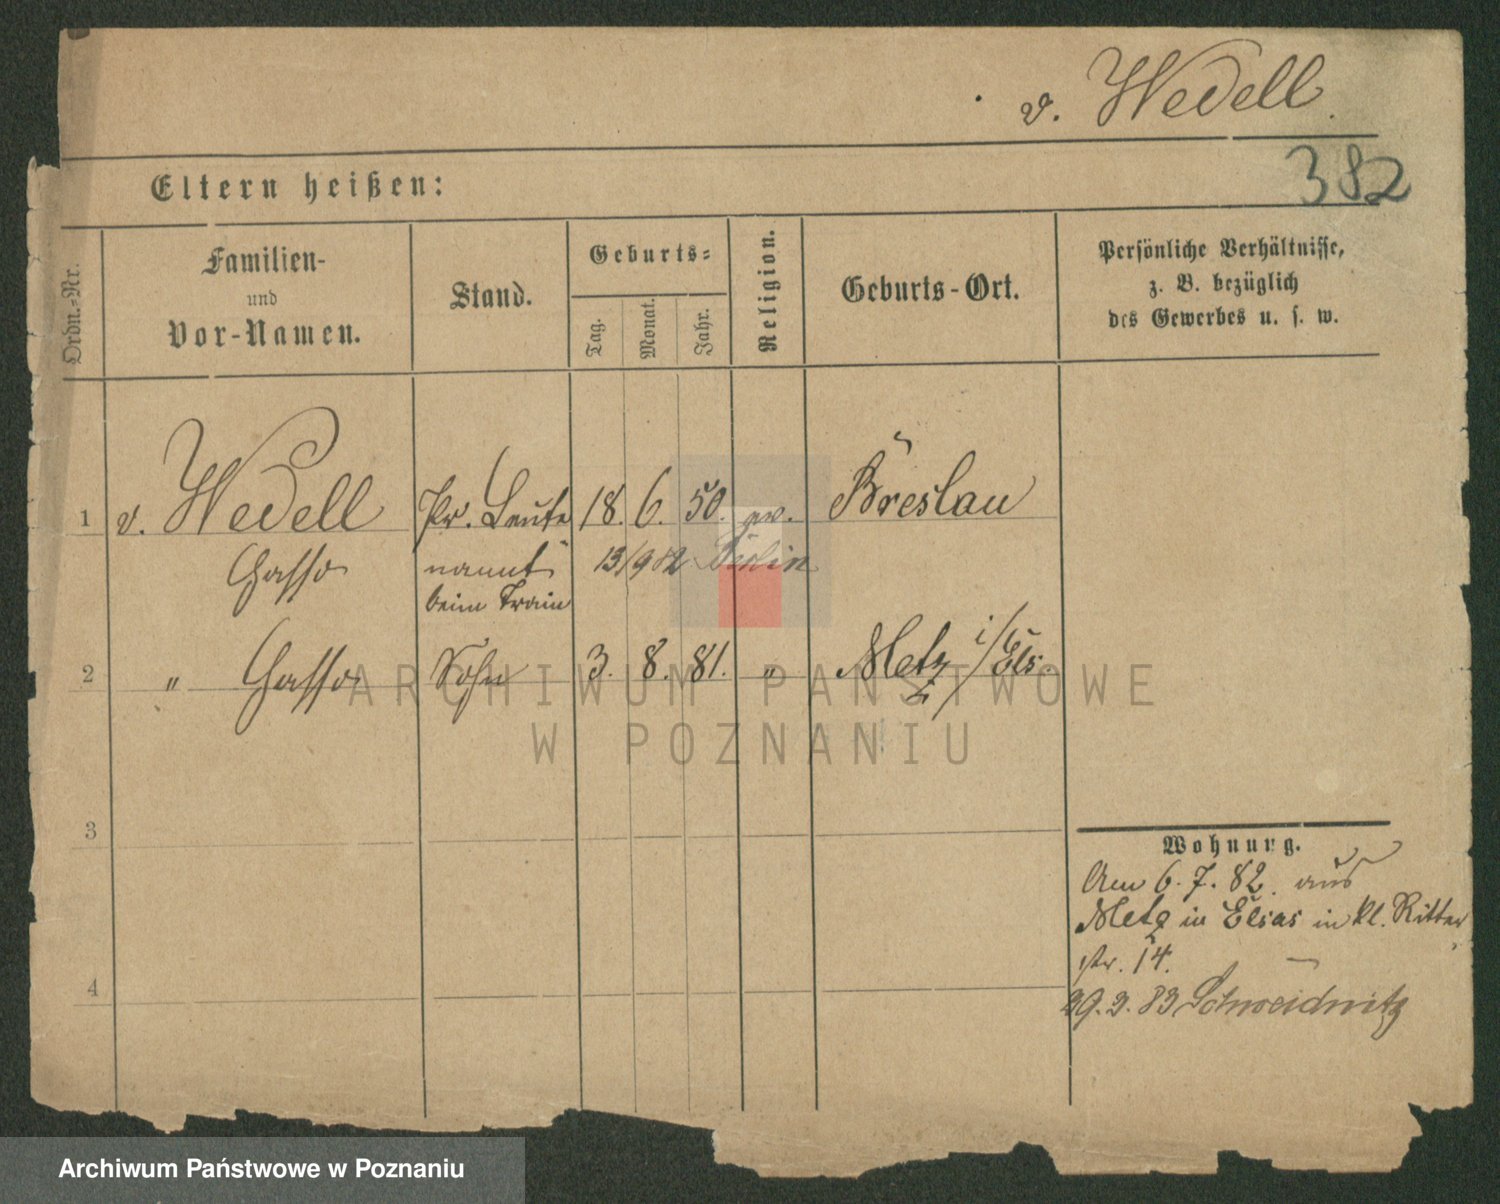 v. Wedell
382
Eltern heißen:
Ordn.-Nr.
Familien-
und
Vor-Namen.
Stand.
Geburts-
Tag.
Monat.
Jahr.
Religion.
Geburts-Ort.
Persönliche Verhältnisse,
z. B. bezüglich
des Gewerbes u. s. w.
1 v. Wedell Pr. Leute 18. 6. 50. ev. Breslau
Hasso nannt 13/9 82 Berlin
beim Train
2 " Hasso Sohn 3. 8. 81. " Metz i/Els.
ARCHIWUM PAŃSTWOWE
W POZNANIU
3
Wohnung.
Am 6. 7. 82. aus
Metz in Elsas in kl. Ritter
str. 14.
4
29. 3. 83 Schweidnitz
Archiwum Państwowe w Poznaniu